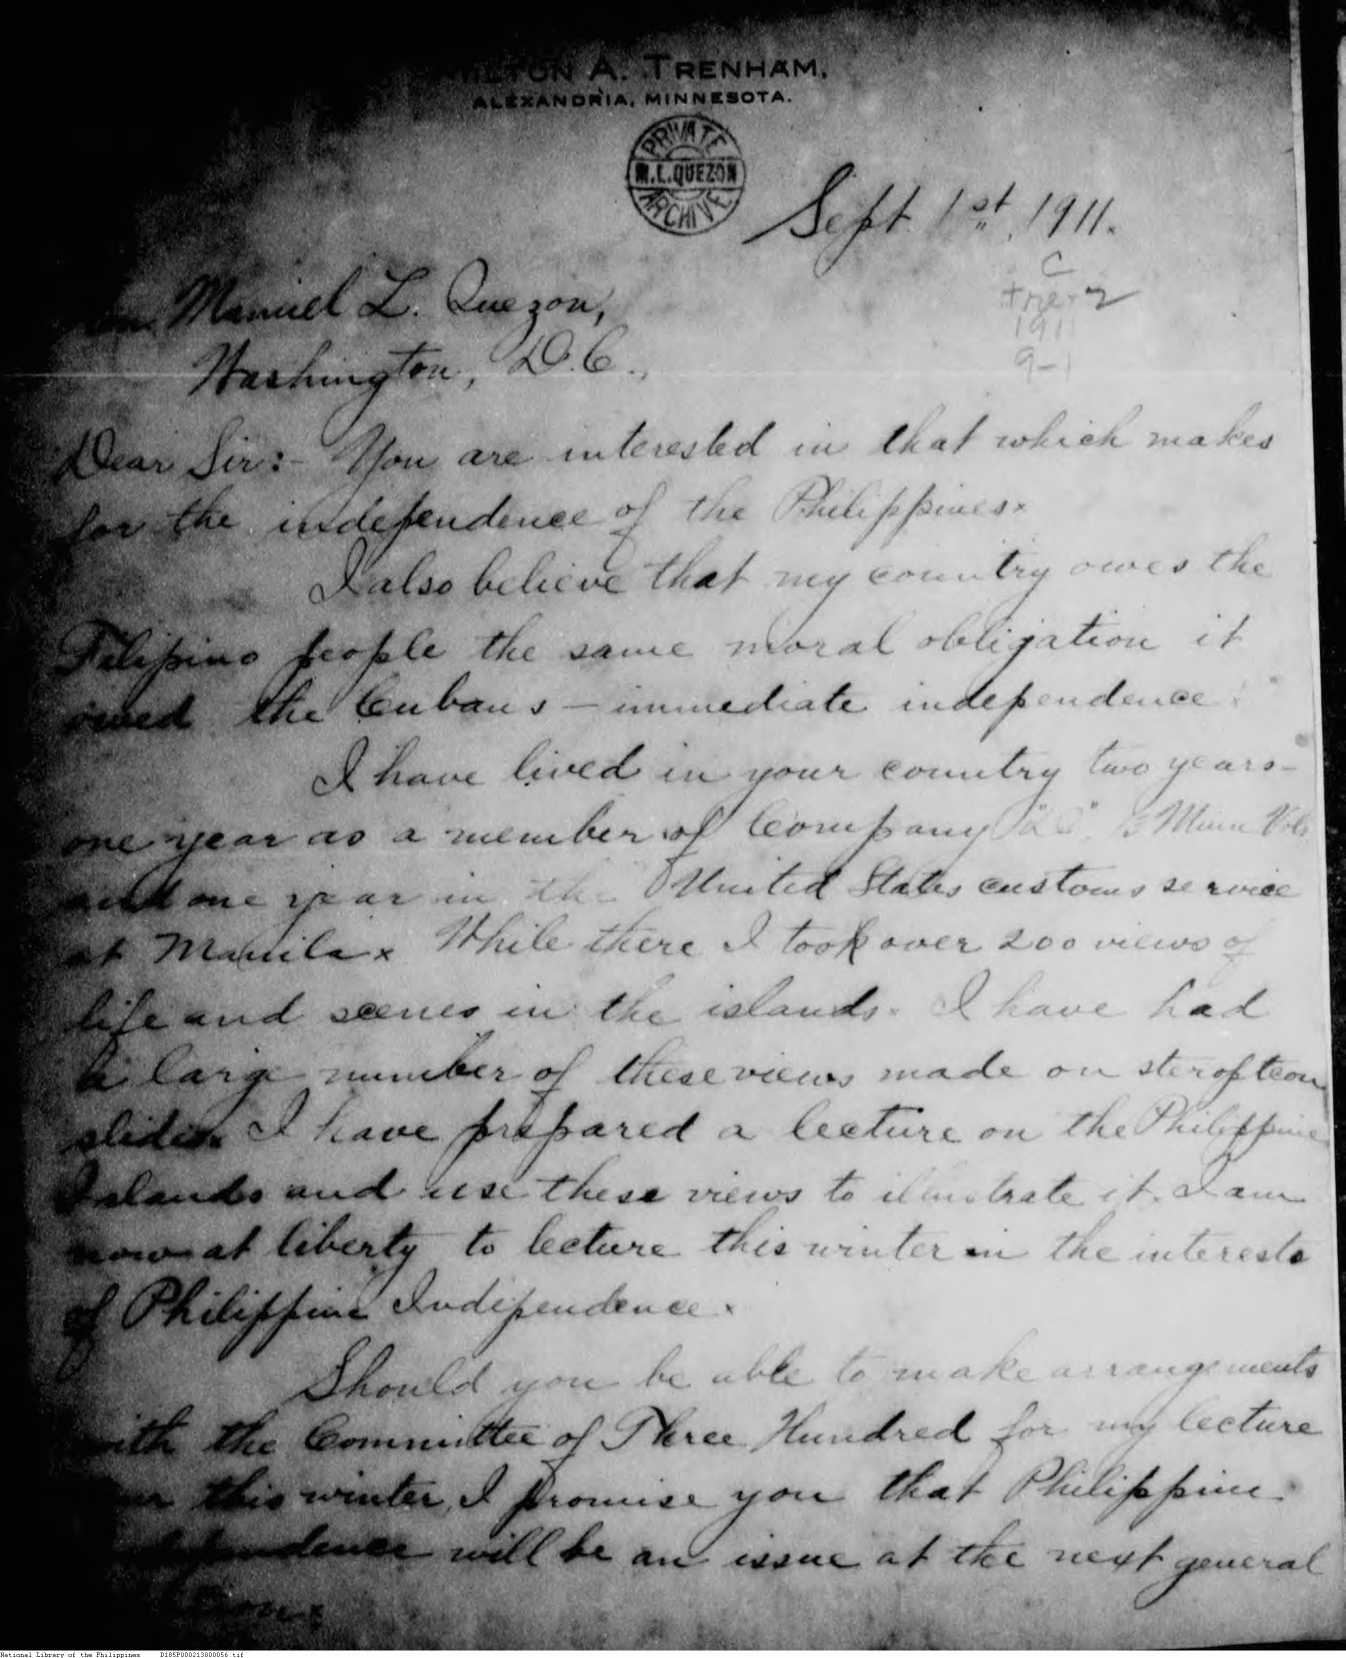 A. TRENHAM,
ALEXANDRIA, MINNESOTA.
PRIVATE
M.L.QUEZON
ARCHIVE
Sept. 1st, 1911.
C
1911
9-1
Manuel L. Quezon,
Washington, D.C.,
Dear Sir:- You are interested in that which makes
for the independence of the Philippines.
I also believe that my country owes the
Filipino people the same moral obligation it
owed the Cubans - immediate independence.
I have lived in your country two years-
one year as a member of Company Minn Vols
and one year in the United States customs service
at Manila. While there I took over 200 views of
life and scenes in the islands. I have had
a large number of these views made on steropteon
slides. I have prepared a lecture on the Philippine
Islands and use these views to illustrate it. I am
now at liberty to lecture this winter in the interests
of Philippine Independence.
Should you be able to make arrangements
with the Committee of Three Hundred for my lecture
this winter, I promise you that Philippine
will be an issue at the next general
National Library of the Philippines D185P000213800056.tif